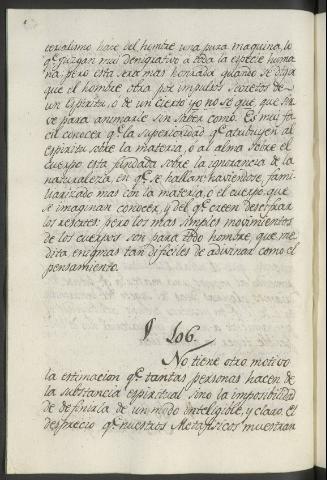 terialismo hace del hombre una pura maquina, lo
q.e juzgan mui denigrativo a toda la especie huma
na; pero esta sera mas honrada quando se diga
que el hombre obra por impulsos secretos de
un Espiritu, o de un cierto yo no sè que, que sir
ve para animarle sin saber como. Es mui fa
cil conocer q.e la superioridad q.e atribuyen al
espiritu sobre la materia, o al alma sobre el
cuerpo esta fundada sobre la ignorancia de la
naturaleza en q.e se hallan: haviendose, fami
liarizado mas con la materia, o el cuerpo que
se imaginan conocer, y del q.e creen descifrar
los resortes: pero los mas simples movimientos
de los cuerpos son para todo hombre, que me
dita, enigmas tan dificiles de adivinar como el
pensamiento.
§ 106.
No tiene otro motivo
la estimacion q.e tantas personas hacen de
la substancia espiritual sino la imposibilidad
de definirla de un modo inteligible, y claro. El
desprecio q.e nuestros Metafisicos muestran